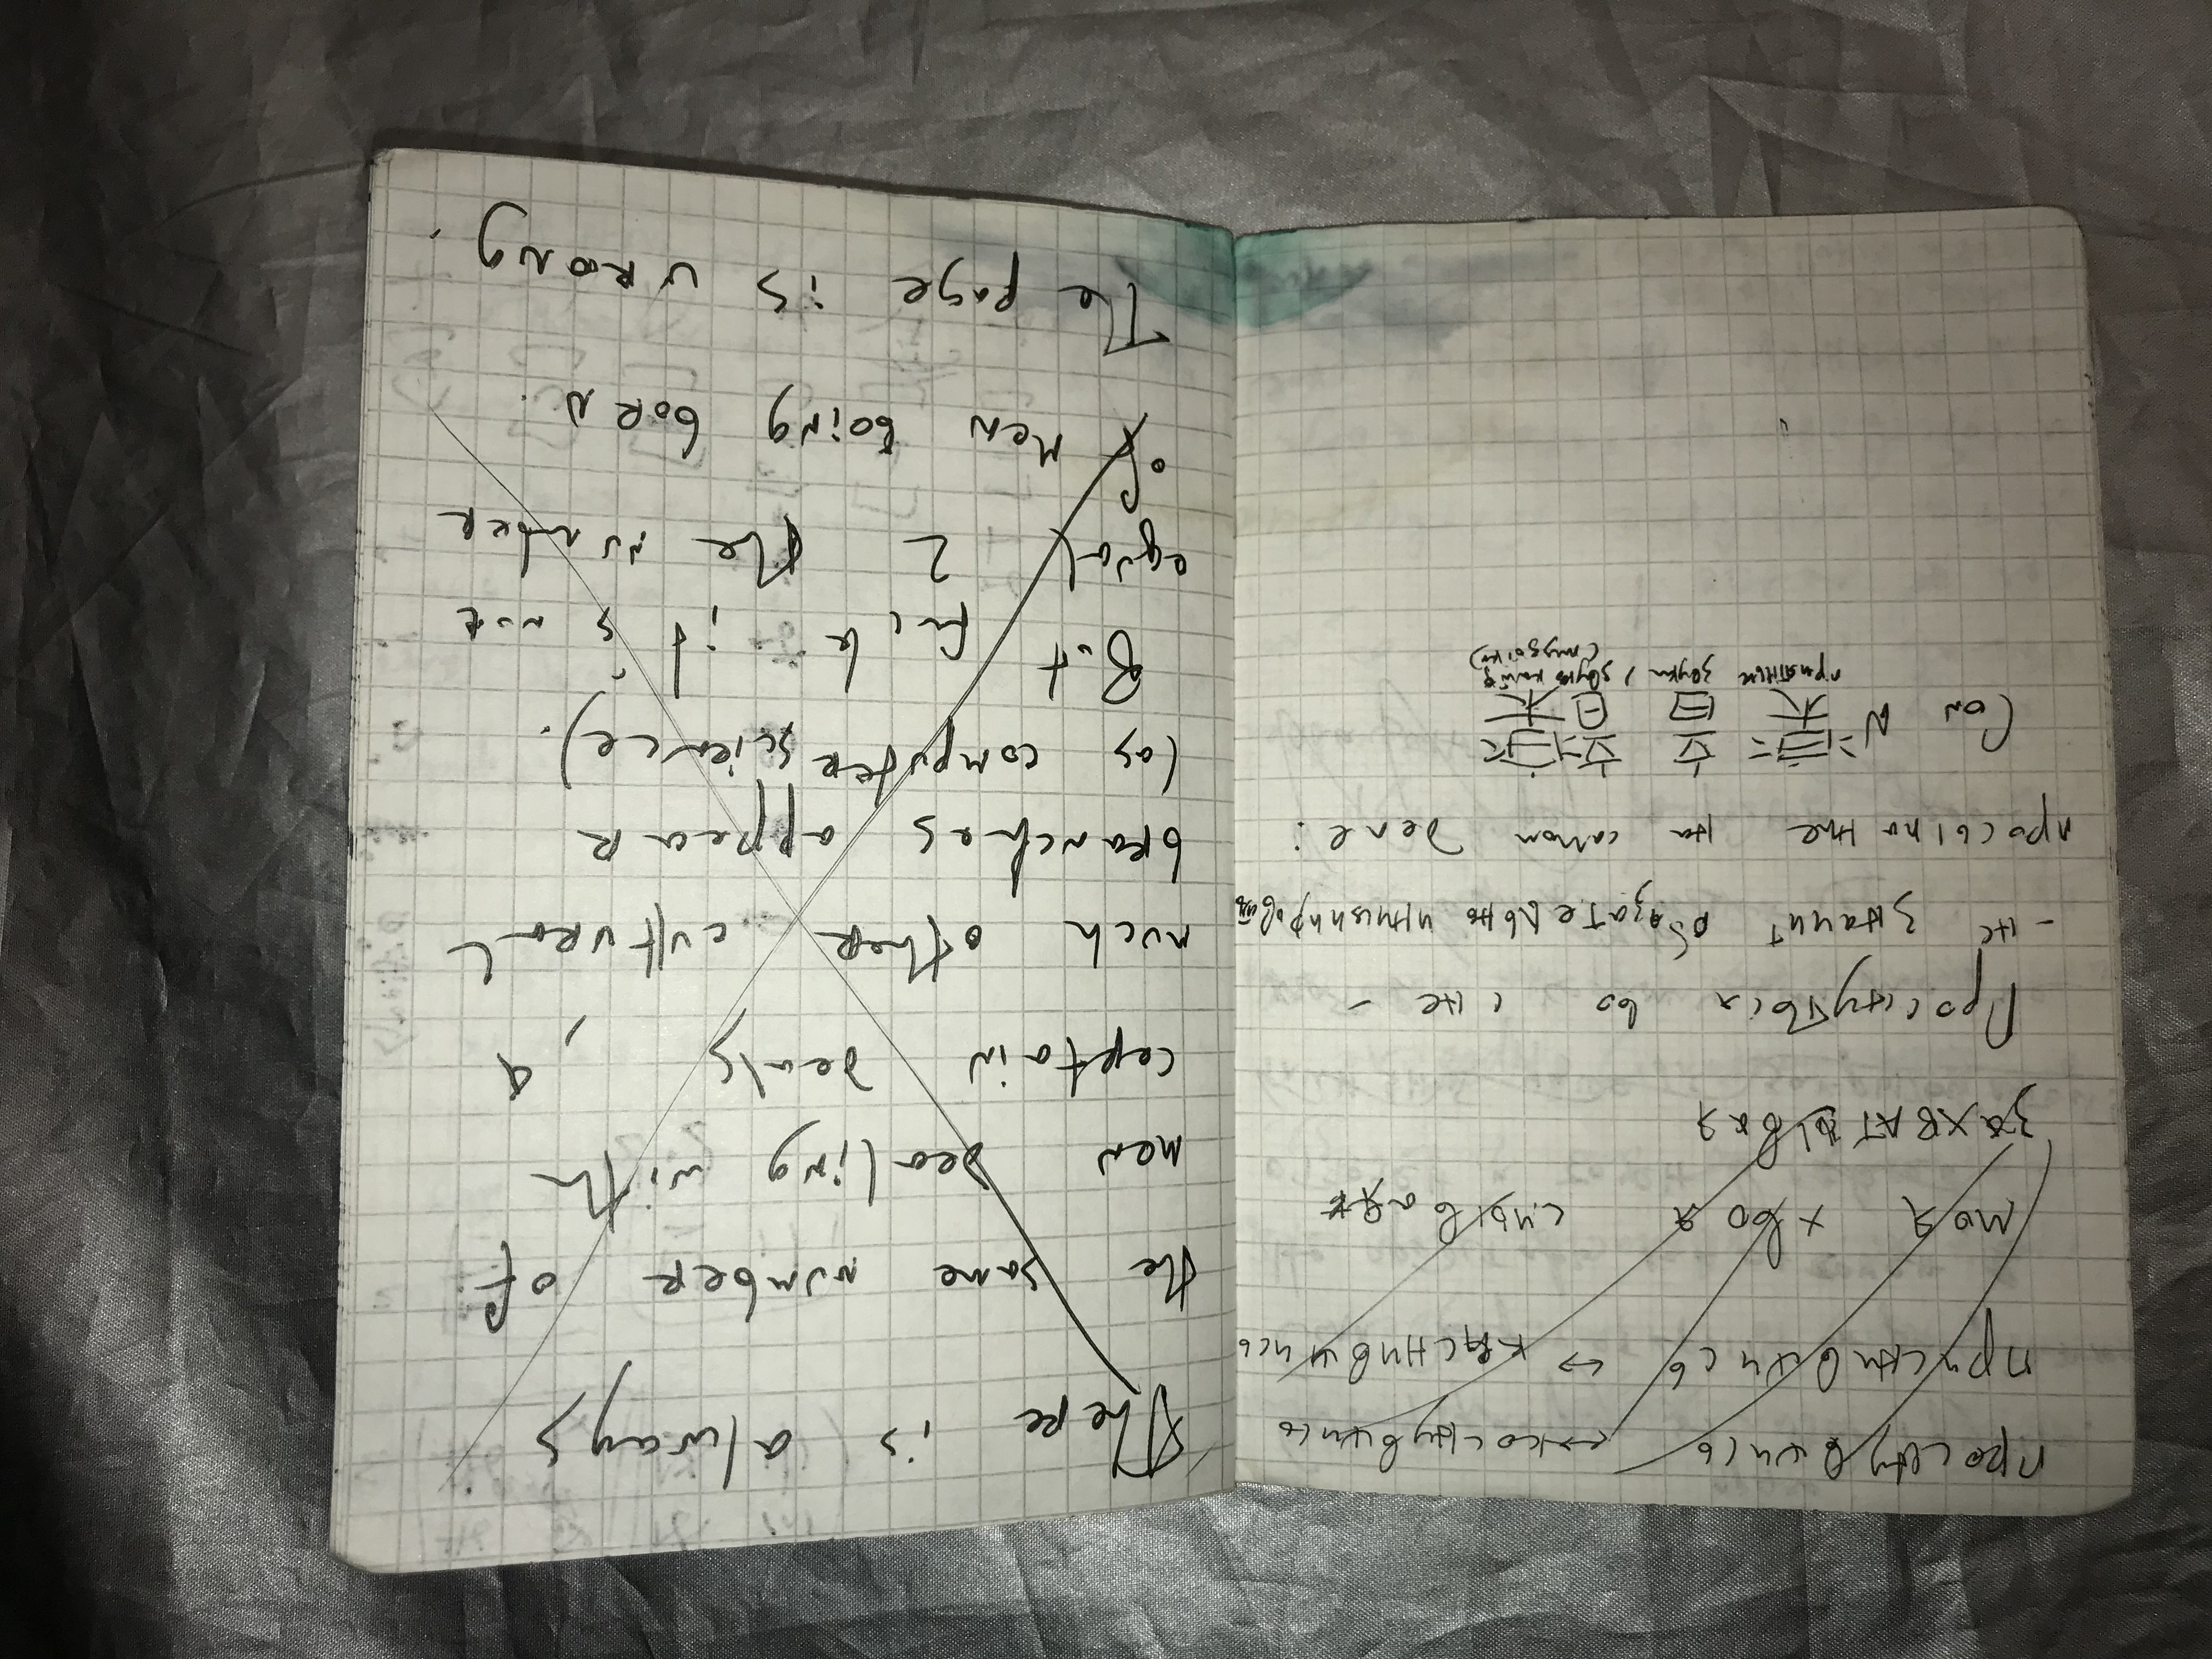 проснувшись ↔ коснувшись
пруснившись ↔ краснившись
моя хвоя смывая
захватывая
Проснуться во сне -
- не значит обязательно инициировать
просыпание на самом деле:
Сон N 楽 音 音楽
приятные звуки, звуко кайф
(музыка)
There is always
the same number of
men dealing with
certain deals, &
much other cultural
branches appear
(as computer science).
But fuck it's not
equal 2 the number
of men being born.
The page is vrong.